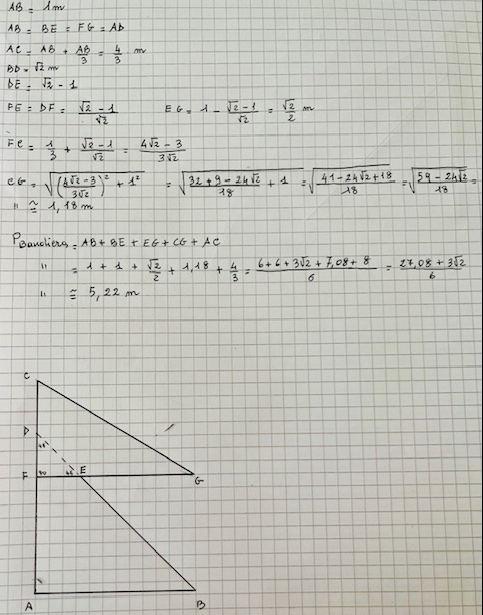 AB = 1m
AB = BE = FG = AD
AC = AB + AB/3 = 4/3 m
BD = √2 m
DE = √2 - 1
FE = DF = (√2 - 1)/√2    EG = 1 - (√2 - 1)/√2 = √2/2 m
FC = 1/3 + (√2 - 1)/√2 = (4√2 - 3)/(3√2)
CG = √(((4√2 - 3)/(3√2))² + 1²) = √((32 + 9 - 24√2)/18 + 1) = √((41 - 24√2 + 18)/18) = √((59 - 24√2)/18) =
" ≅ 1,18 m
P Bandiera = AB + BE + EG + CG + AC
" = 1 + 1 + √2/2 + 1,18 + 4/3 = (6 + 6 + 3√2 + 7,08 + 8)/6 = (27,08 + 3√2)/6
" ≅ 5,22 m
C
D
45°
F 90 45 E
G
A B